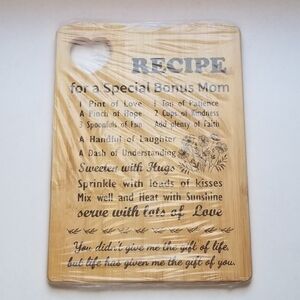 RECIPE
for a Special Bonus Mom
1 Pint of Love 1 Ton of Patience
A Pinch of Hope 2 Cups of Kindness
3 Spoonfuls of Fun Add plenty of Faith
A Handful of Laughter
A Dash of Understanding
Sweeten with Hugs
Sprinkle with loads of kisses
Mix well and Heat with Sunshine
serve with lots of Love
You didn't give me the gift of life,
but life has given me the gift of you.